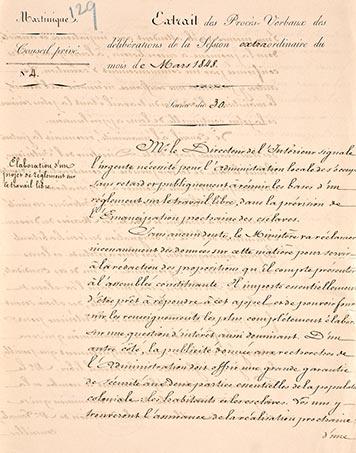 Martinique
129
Conseil privé
N° 4.
Extrait des Procès-Verbaux des
délibérations de la Session extraordinaire du
mois de Mars 1848.
Séance du 30.
Elaboration d'un
projet de règlement sur
le travail libre.
Mr. le Directeur de l'Intérieur signale
l'urgente nécessité pour l'Administration locale de s'occuper
sans retard et publiquement à réunir les bases d'un
règlement sur le travail libre, dans la prévision de
l'Emancipation prochaine des esclaves.
Sans aucun doute, le Ministère va réclamer
incessamment des données sur cette matière pour servir
à la rédaction des propositions qu'il compte présenter
à l'assemblée constituante. Il importe essentiellement
d'être prêt à répondre à cet appel et de pouvoir four
nir les renseignements les plus complètement élabo
sur une question d'intérêt aussi dominant. D'un
autre côté, la publicité donnée aux recherches de
l'Administration doit offrir une grande garantie
de sécurité aux deux parties essentielles de la populat
coloniale: les habitants et les esclaves. Les uns y
trouveront l'assurance de la réalisation prochaine
d'une